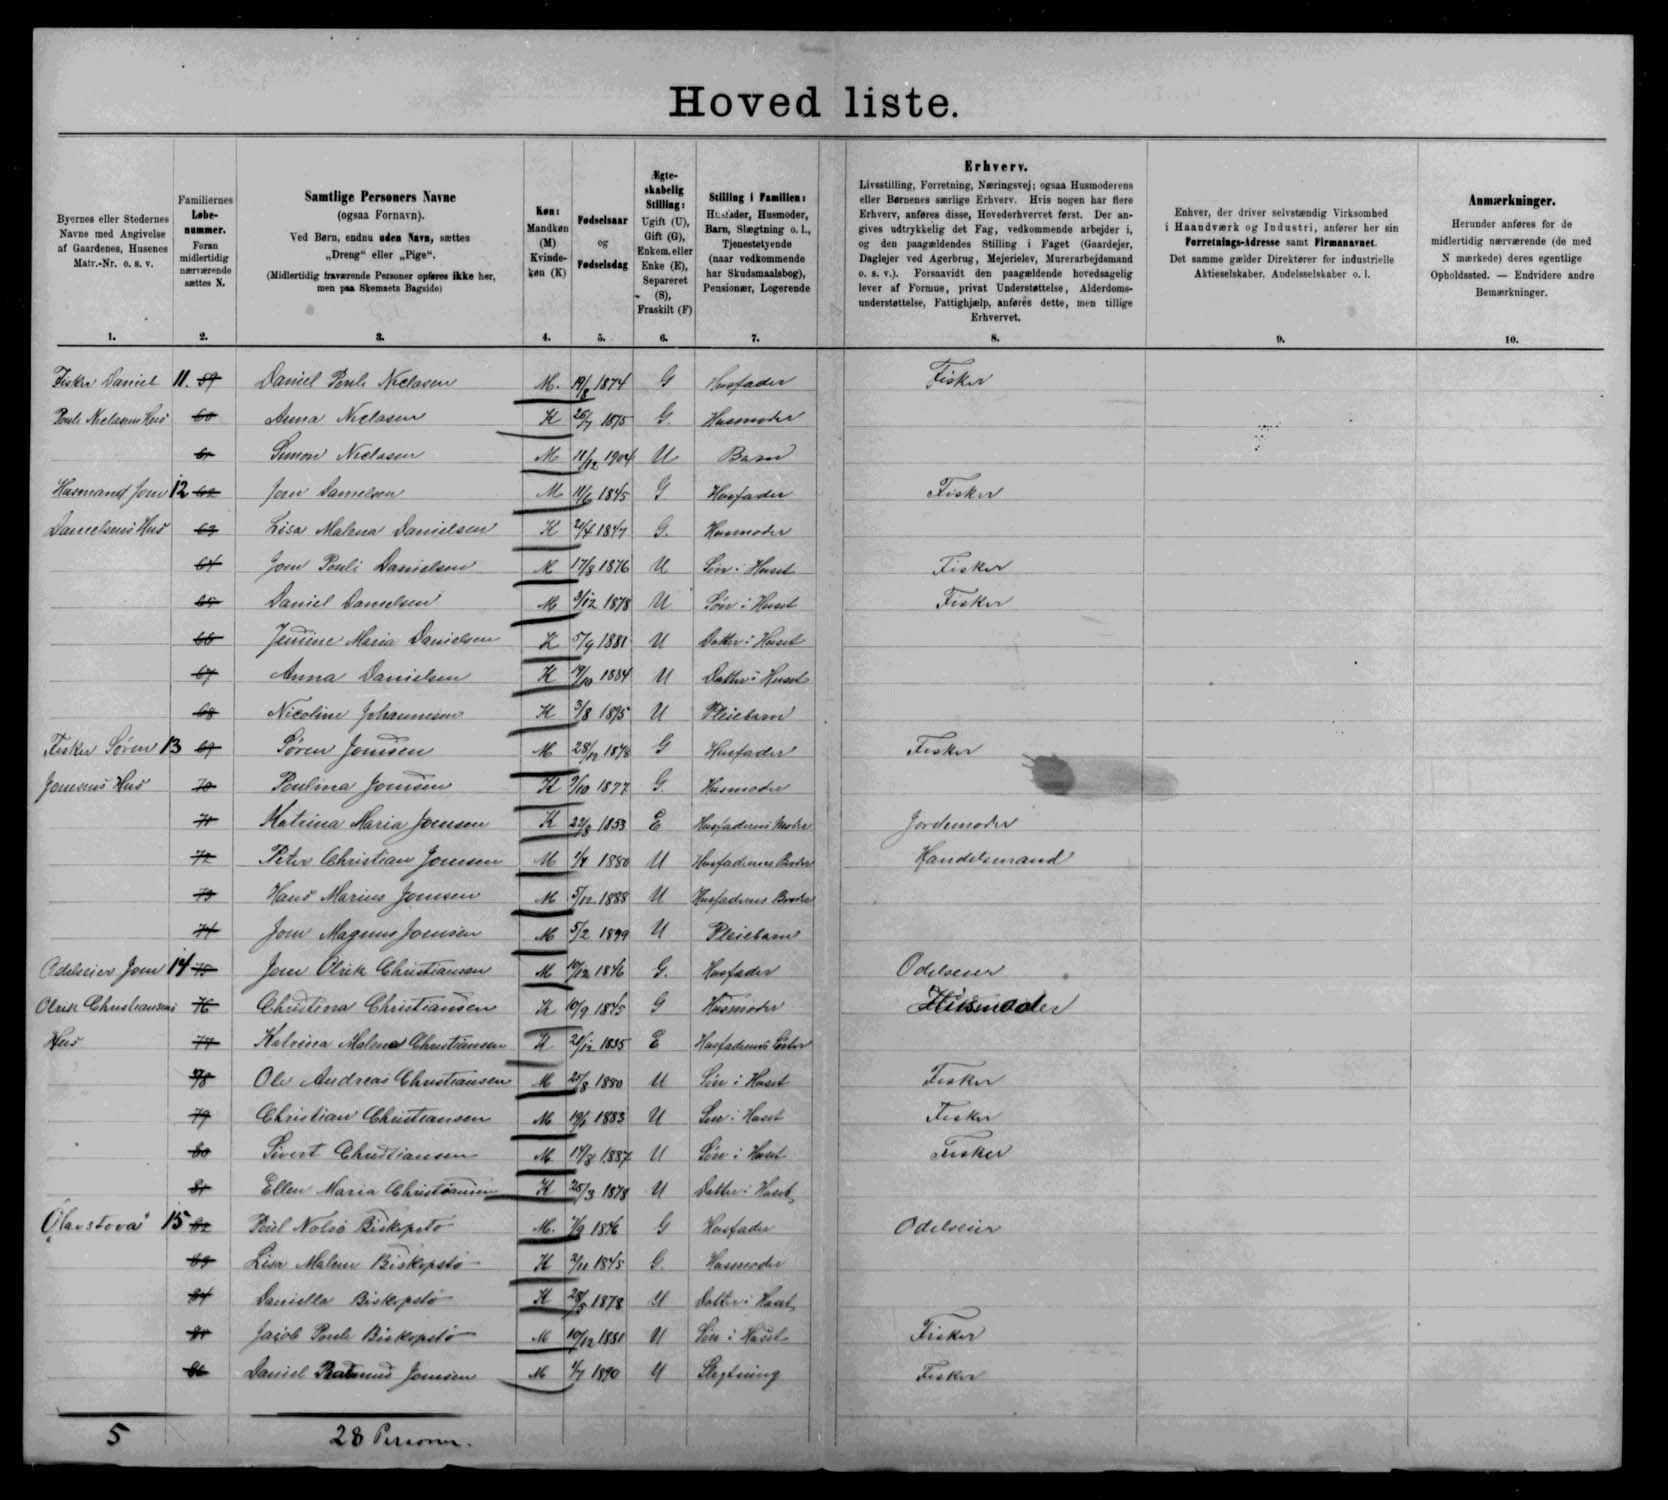 Hoved liste.
Byernes eller Stedernes Navne med Angivelse af Gaardenes, Husenes Matr.-Nr. o. s. v.
Familiernes Løbenummer. Foran midlertidig nærværende sættes N.
Samtlige Personers Navne (ogsaa Fornavn). Ved Børn, endnu uden Navn, sættes „Dreng" eller „Pige". (Midlertidig fraværende Personer opføres ikke her, men paa Skemaets Bagside)
Køn: Mandkøn (M) Kvindekøn (K)
Fødselsaar og Fødselsdag
Ægteskabelig Stilling: Ugift (U), Gift (G), Enkem. eller Enke (E), Separeret (S), Fraskilt (F)
Stilling i Familien: Husfader, Husmoder, Barn, Slægtning o. l., Tjenestetyende (naar vedkommende har Skudsmaalsbog), Pensionær, Logerende
Erhverv. Livsstilling, Forretning, Næringsvej; ogsaa Husmoderens eller Børnenes særlige Erhverv. Hvis nogen har flere Erhverv, anføres disse, Hovederhvervet først. Der angives udtrykkelig det Fag, vedkommende arbejder i, og den paagældendes Stilling i Faget (Gaardejer, Daglejer ved Agerbrug, Mejerielev, Murerarbejdsmand o. s. v.). Forsaavidt den paagældende hovedsagelig lever af Formue, privat Understøttelse, Alderdomsunderstøttelse, Fattighjælp, anføres dette, men tillige Erhvervet.
Enhver, der driver selvstændig Virksomhed i Haandværk og Industri, anfører her sin Forretnings-Adresse samt Firmanavnet. Det samme gælder Direktører for industrielle Aktieselskaber, Andelsselskaber o. l.
Anmærkninger. Herunder anføres for de midlertidig nærværende (de med N mærkede) deres egentlige Opholdssted. — Endvidere andre Bemærkninger.
1. 2. 3. 4. 5. 6. 7. 8. 9. 10.
Fisker Daniel 11. 59 Daniel Pouli Niclasen M. 19/8 1874 G Husfader Fisker
Pouli Niclasens Hus 60 Anna Niclasen K 26/7 1875 G. Husmoder
61 Simon Niclasen M 11/12 1904 U Barn
Husmand Joen 12 62 Joen Danielsen M 11/6 1845 G Husfader Fisker
Danielsens Hus 63 Lisa Malena Danielsen K 21/4 1847 G. Husmoder
64 Joen Pouli Danielsen M 17/8 1876 U Søn i Huset Fisker
65 Daniel Danielsen M 3/12 1878 U Søn i Huset Fisker
66 Jensine Maria Danielsen K 5/9 1881 U Datter i Huset
67 Anna Danielsen K 19/10 1884 U Datter i Huset
68 Nicoline Johannesen K 3/8 1895 U Pleiebarn
Fisker Søren 13 69 Søren Joensen M 28/12 1878 G Husfader Fisker
Joensens Hus 70 Poulina Joensen K 9/10 1877 G. Husmoder
71 Katrina Maria Joensen K 22/3 1853 E Husfaderens Moder Jordemoder
72 Peter Christian Joensen M 1/4 1880 U Husfaderens Broder Handelsmand
73 Hans Marius Joensen M 5/12 1888 U Husfaderens Broder
74 Joen Magnus Joensen M 5/2 1899 U Pleiebarn
Odelseier Joen 14 75 Joen Olrik Christiansen M 10/12 1846 G. Husfader Odelseier
Olrik Christiansens 76 Christina Christiansen K 10/9 1845 G Husmoder Husmoder
Hus 77 Katrina Malena Christiansen K 21/12 1835 E Husfaderens Søster
78 Ole Andreas Christiansen M 25/8 1880 U Søn i Huset Fisker
79 Christian Christiansen M 19/1 1883 U Søn i Huset Fisker
80 Sivert Christiansen M 14/3 1887 U Søn i Huset Fisker
81 Ellen Maria Christiansen K 25/3 1878 U Datter i Huset
Ólavstova 15 82 Poul Nolsø Biskopstø M. 1/9 1846 G Husfader Odelseier
83 Lisa Malene Biskopstø K 2/11 1845 G. Husmoder
84 Daniella Biskopstø K 28/5 1878 U Datter i Huset
85 Jacob Pouli Biskopstø M 10/12 1881 U Søn i Huset Fisker
86 Daniel Joensen M 1/7 1890 U Slegtning Fisker
5 28 Personer.